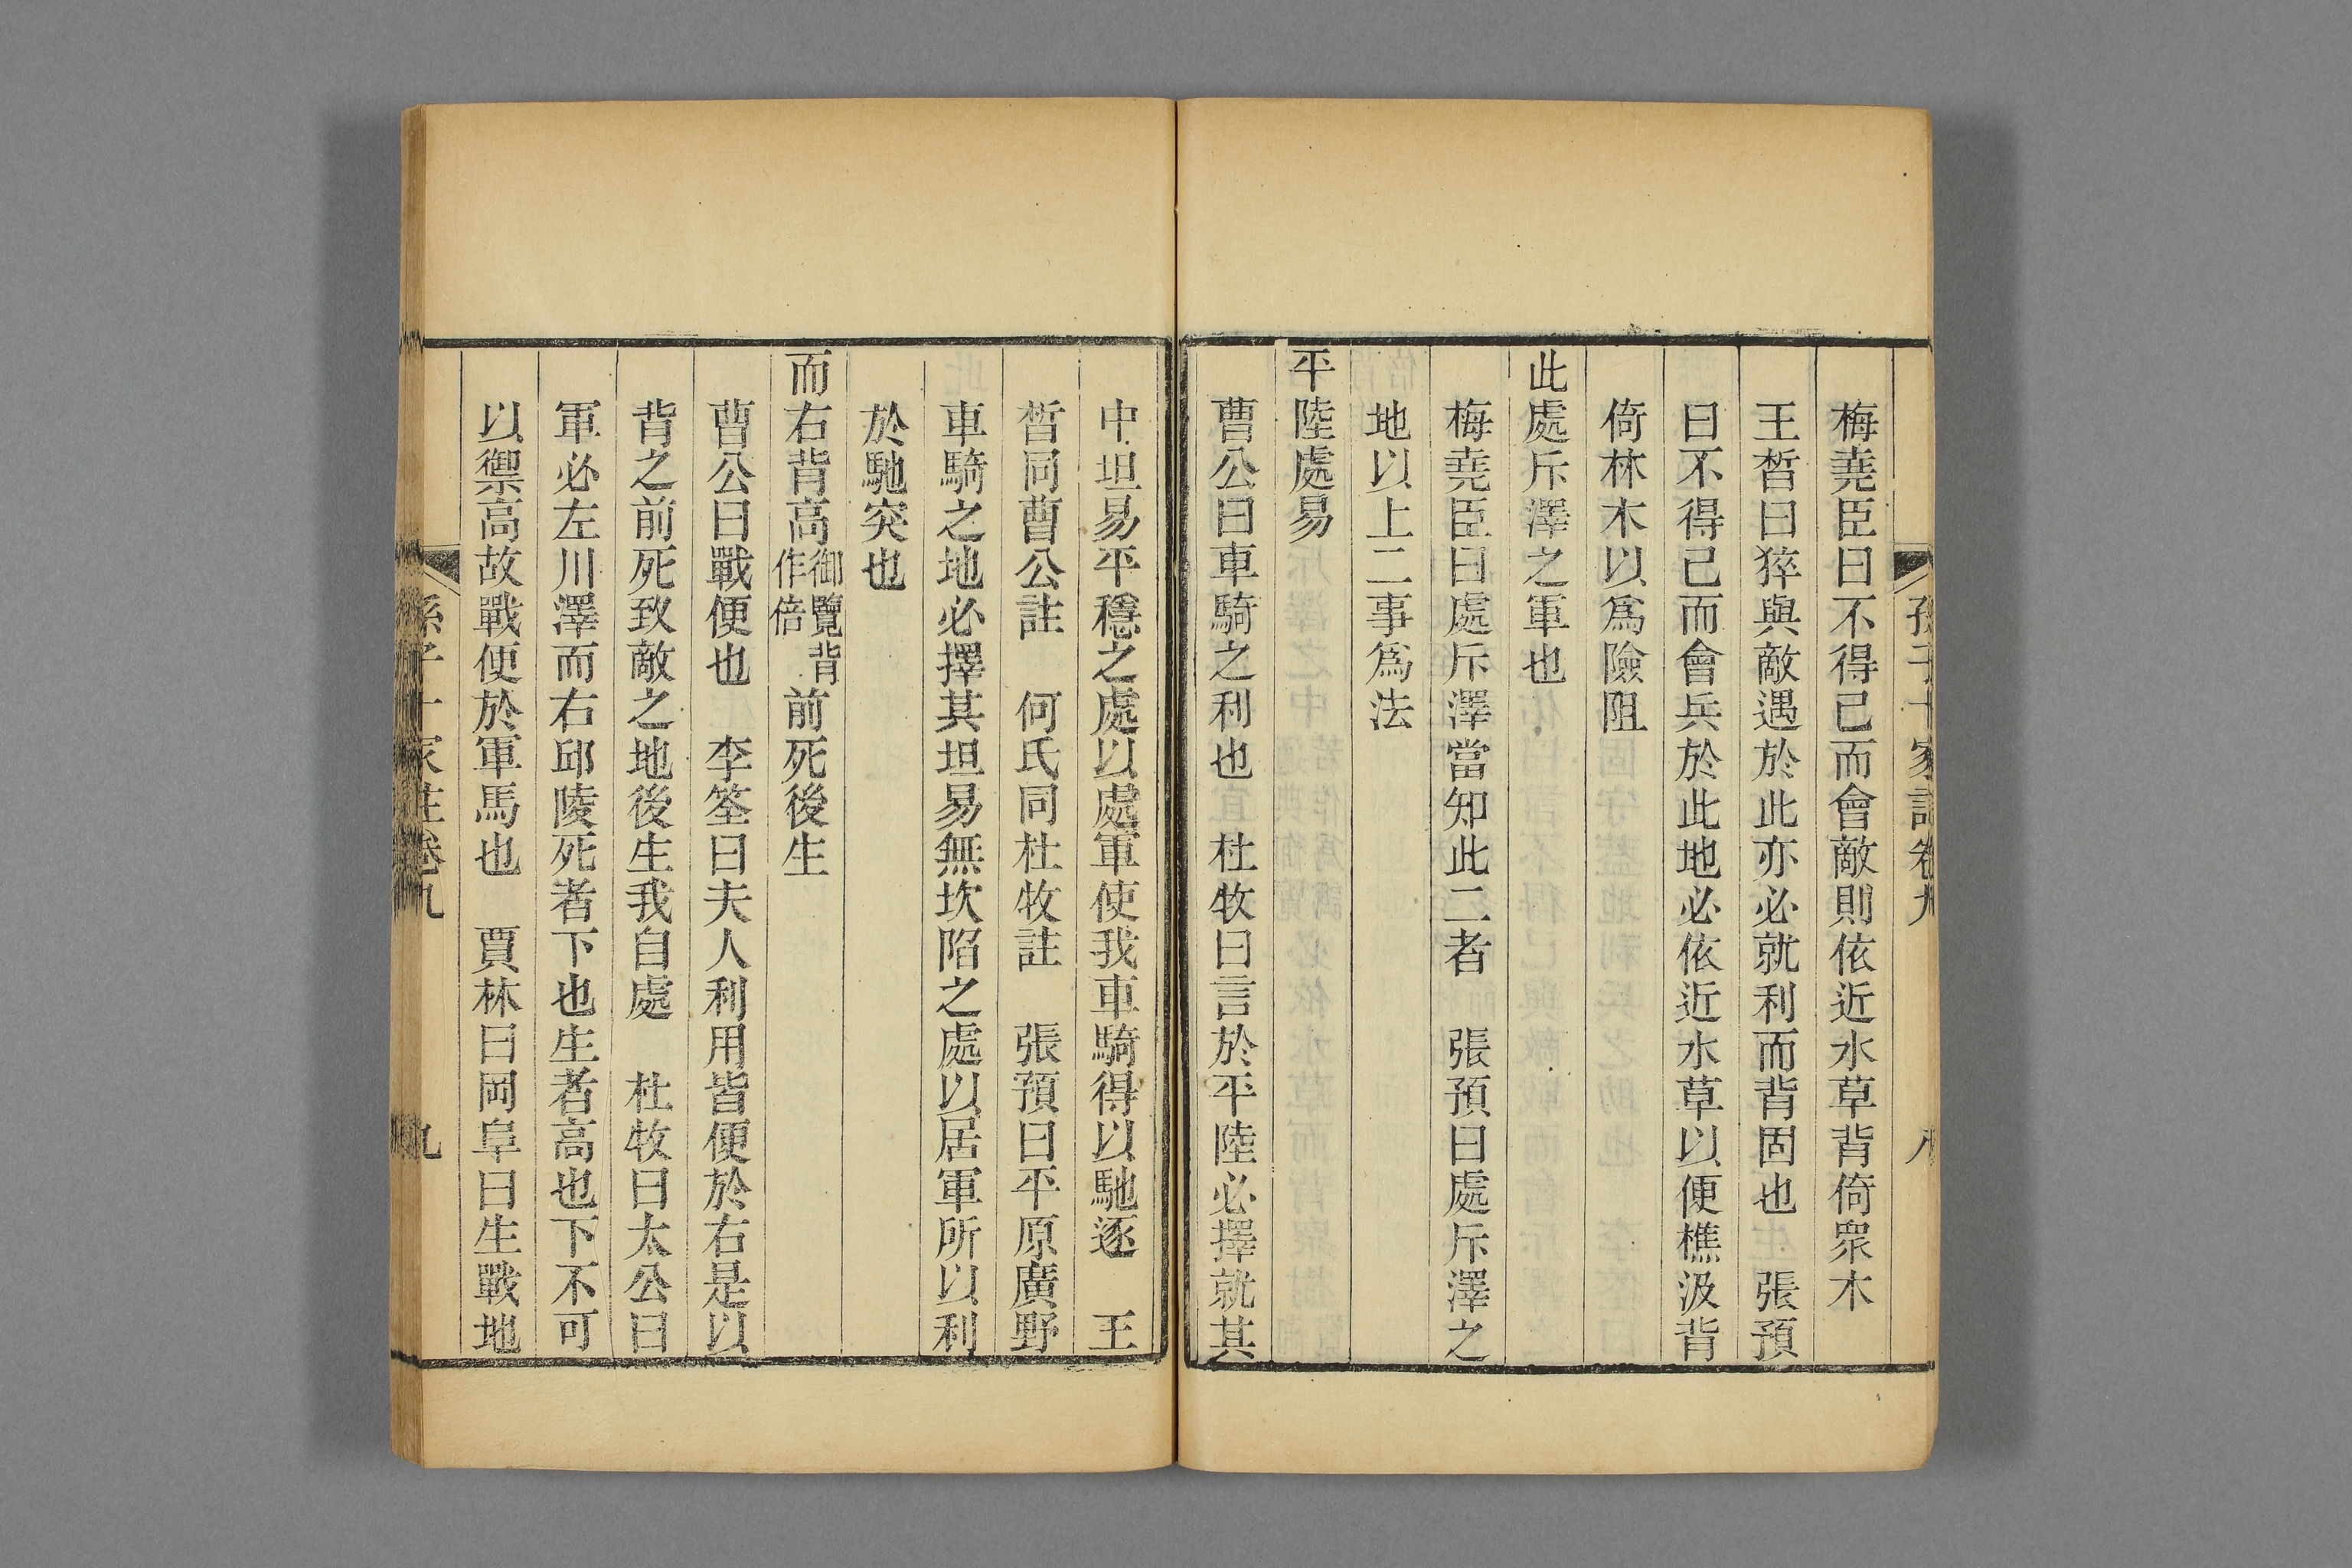 梅堯臣曰不得已而會敵則依近水草背倚眾木
王晳曰猝與敵遇於此亦必就利而背固也　張預
曰不得已而會兵於此地必依近水草以便樵汲背
倚林木以爲險阻
此處斥澤之軍也
梅堯臣曰處斥澤當知此二者　張預曰處斥澤之
地以上二事爲法
平陸處易
曹公曰車騎之利也　杜牧曰言於平陸必擇就其
中坦易平穩之處以處軍使我車騎得以馳逐　王
晳同曹公註　何氏同杜牧註　張預曰平原廣野
車騎之地必擇其坦易無坎陷之處以居軍所以利
於馳突也
而右背高御覽背作倍前死後生
曹公曰戰便也　李筌曰夫人利用皆便於右是以
背之前死致敵之地後生我自處　杜牧曰太公曰
軍必左川澤而右邱陵死者下也生者高也下不可
以禦高故戰便於軍馬也　賈林曰岡阜曰生戰地
孫子十家註卷九
九